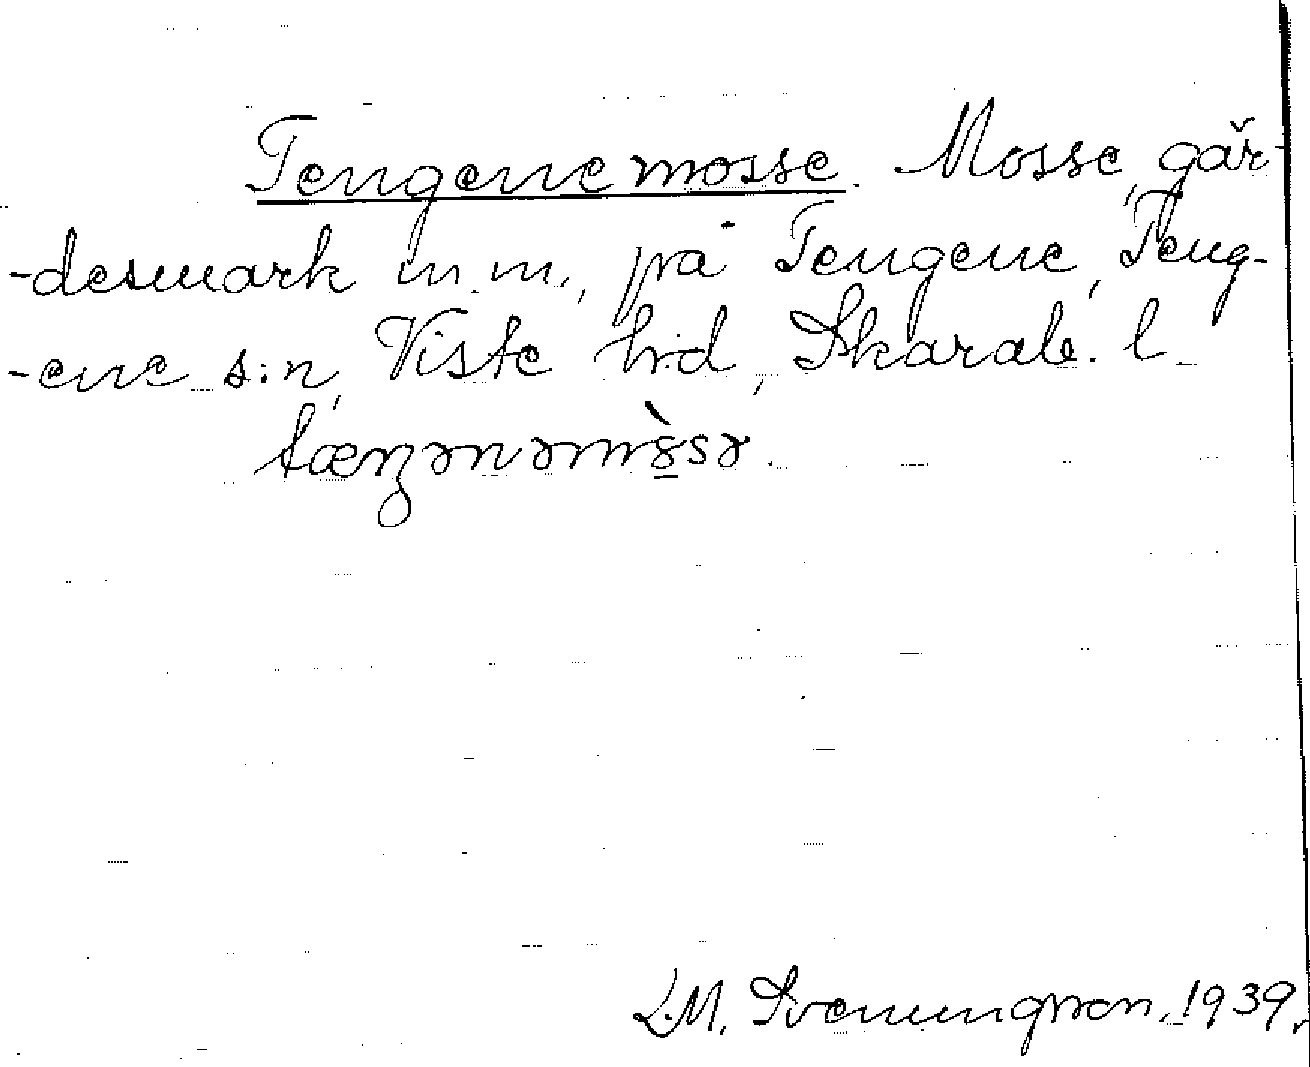 Tengene mosse. Mosse, går-
-desmark m.m., på Tengene, Teng-
-ene s:n, Viste h:d, Skarab. l.
tæŋənəmòsə.
L.M. Svenungsson, 1939.